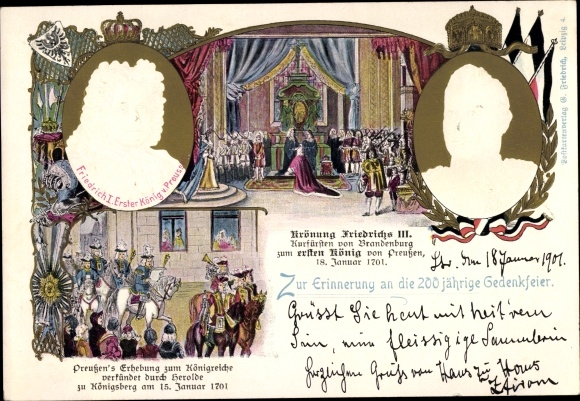 Friedrich I. Erster König v. Preuss
Krönung Friedrichs III.
Kurfürsten von Brandenburg
zum ersten König von Preußen,
18. Januar 1701.
18 Januar 1901.
Zur Erinnerung an die 200 jährige Gedenkfeier.
Grüsst Sie heut mit heit'rem
Sinn, eine fleissigige Sammlerin
Herzlichen Gruss von Haus zu Haus
Preußen's Erhebung zum Königreiche
verkündet durch Herolde
zu Königsberg am 15. Januar 1701
Postkartenverlag G. Friedrich, Leipzig 4.